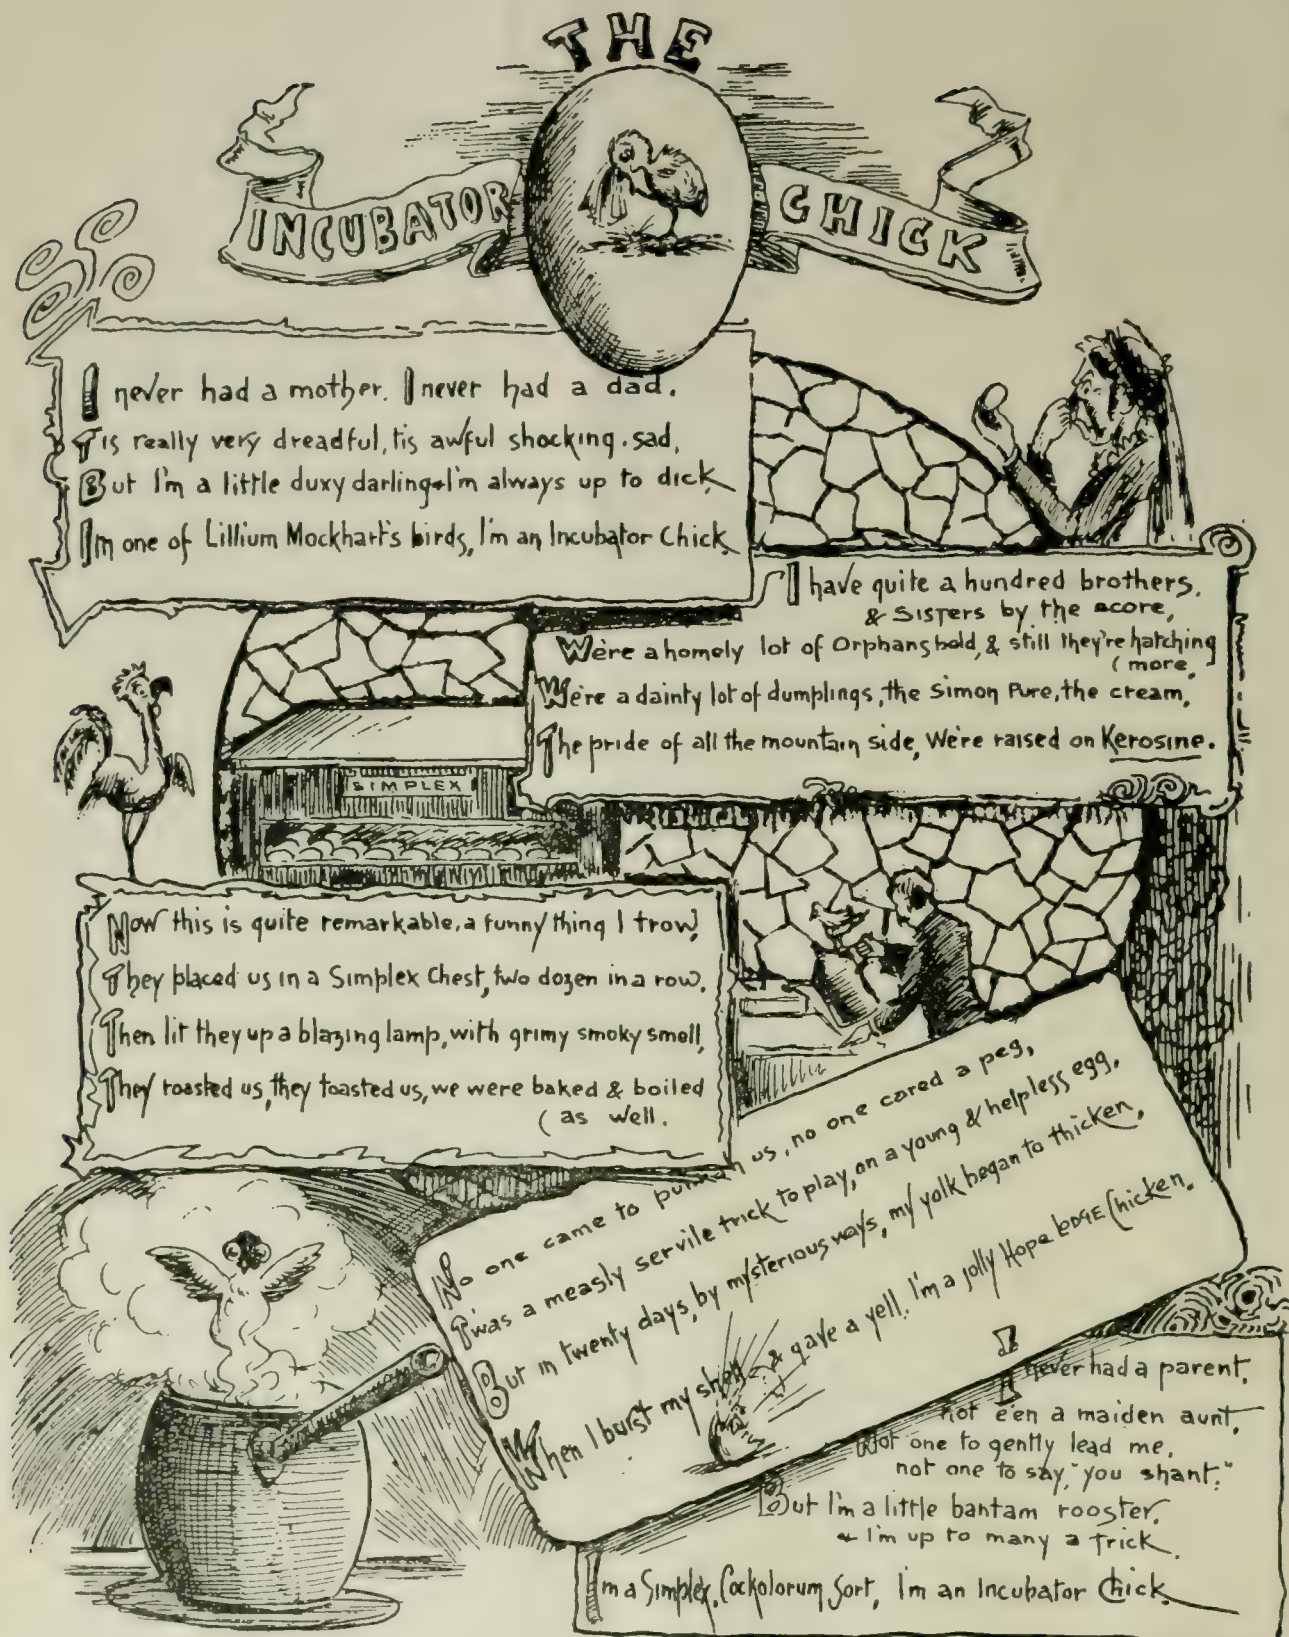 THE
INCUBATOR CHICK
I never had a mother. I never had a dad.
Tis really very dreadful, tis awful shocking. sad,
But I'm a little duxy darling & I'm always up to dick,
I'm one of Lillium Mockhart's birds, I'm an Incubator Chick.
I have quite a hundred brothers,
& Sisters by the score,
We're a homely lot of Orphans bold, & still they're hatching
(more.
We're a dainty lot of dumplings, the Simon Pure, the cream,
The pride of all the mountain side, We're raised on Kerosine.
SIMPLEX
Now this is quite remarkable, a funny thing I trow,
They placed us in a Simplex Chest, two dozen in a row,
Then lit they up a blazing lamp, with grimy smoky smell,
They roasted us, they toasted us, we were baked & boiled
(as well.
No one came to punkah us, no one cared a peg,
Twas a measly servile trick to play, on a young & helpless egg.
But in twenty days, by mysterious ways, my yolk began to thicken,
When I burst my shell & gave a yell. I'm a jolly Hope Lodge Chicken.
I never had a parent,
not e'en a maiden aunt,
Not one to gently lead me,
not one to say, "you shant."
But I'm a little bantam rooster,
& I'm up to many a trick.
I'm a Simplex, Cockolorum Sort, I'm an Incubator Chick.